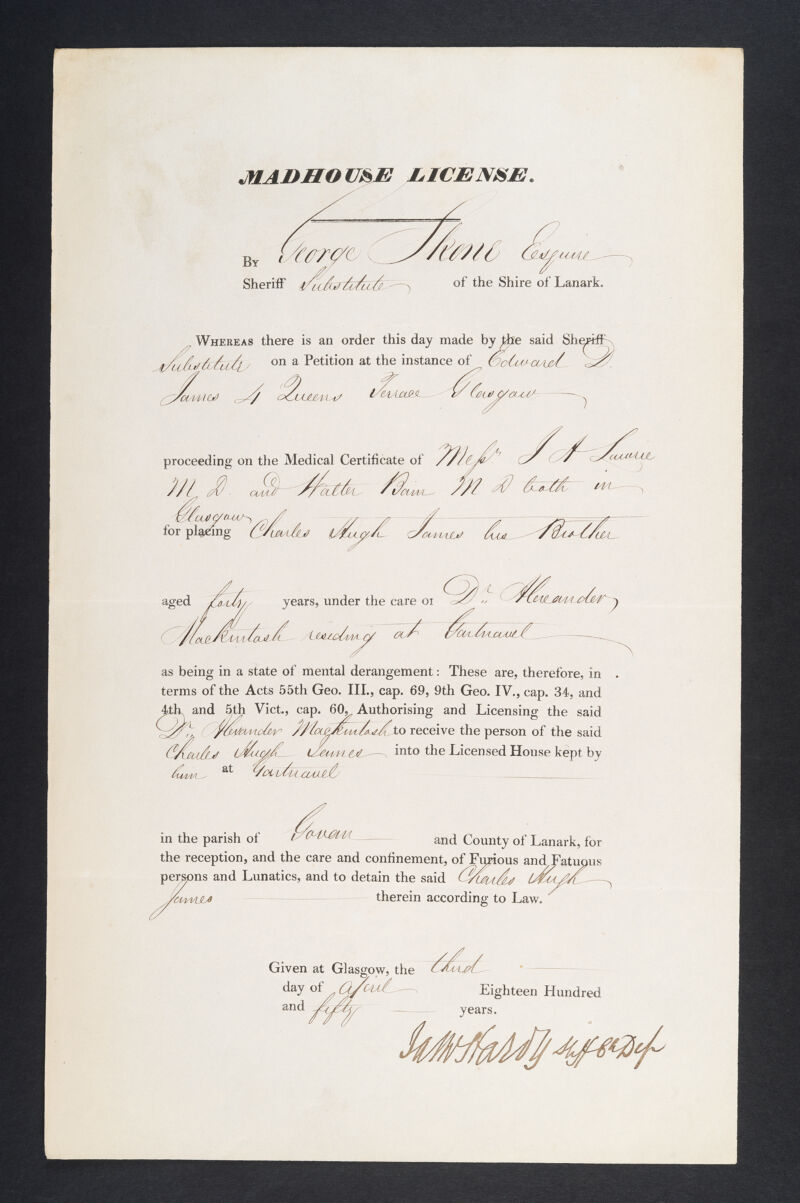 MADHOUSE LICENSE.
By George Skene Esquire
Sheriff Substitute of the Shire of Lanark.
Whereas there is an order this day made by the said Sheriff
Substitute on a Petition at the instance of Edward D.
James 4 Queens Terrace Glasgow
proceeding on the Medical Certificate of Messrs J A Lawrie
M D. and Walter Bain M D both in
Glasgow
for placing Charles Hugh James his Brother
aged forty years, under the care of Dr. Alexander
Mackintosh residing at Gartnavel
as being in a state of mental derangement: These are, therefore, in
terms of the Acts 55th Geo. III., cap. 69, 9th Geo. IV., cap. 34, and
4th and 5th Vict., cap. 60, Authorising and Licensing the said
Dr. Alexander Mackintosh to receive the person of the said
Charles Hugh James into the Licensed House kept by
him at Gartnavel
in the parish of Govan and County of Lanark, for
the reception, and the care and confinement, of Furious and Fatuous
persons and Lunatics, and to detain the said Charles Hugh
James therein according to Law.
Given at Glasgow, the third
day of April Eighteen Hundred
and fifty years.
Hardy